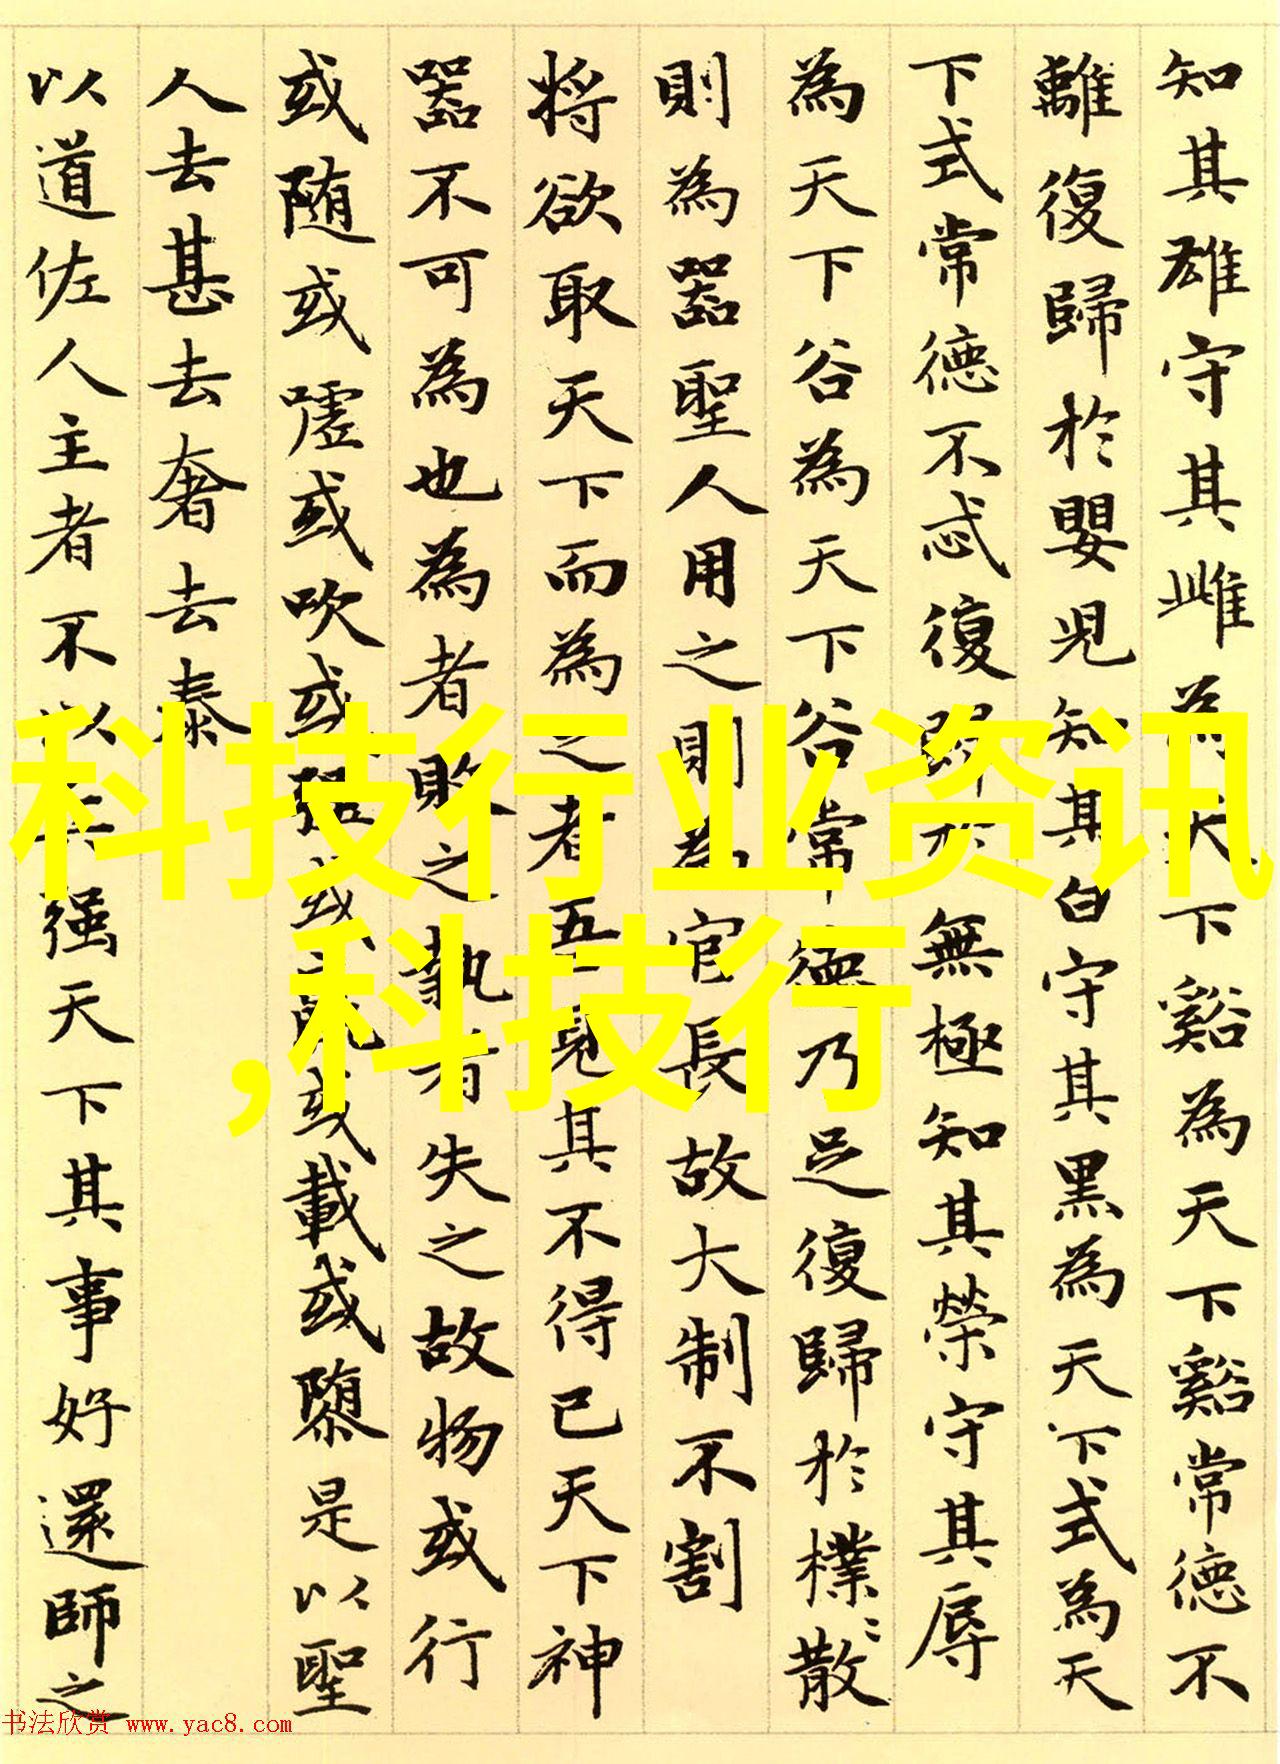 知其雄守其雌為天下谿為天下谿常德不
離復歸於嬰兒知其白守其黑為天下式為天
下式常德不忒復歸於無極知其榮守其辱
為天下谷為天下谷常德乃足復歸於樸〻散
則為器聖人用之則為官長故大制不割
将欲取天下而為之者吾見其不得已天下神
器不可為也為者敗之執者失之故物或行
或随或嘘或吹或强或或載或隳是以聖
人去甚去奢去泰
以道佐人主者不以兵强天下其事好還師之
科技行业资讯
,科技行
书法欣赏 www.yac8.com